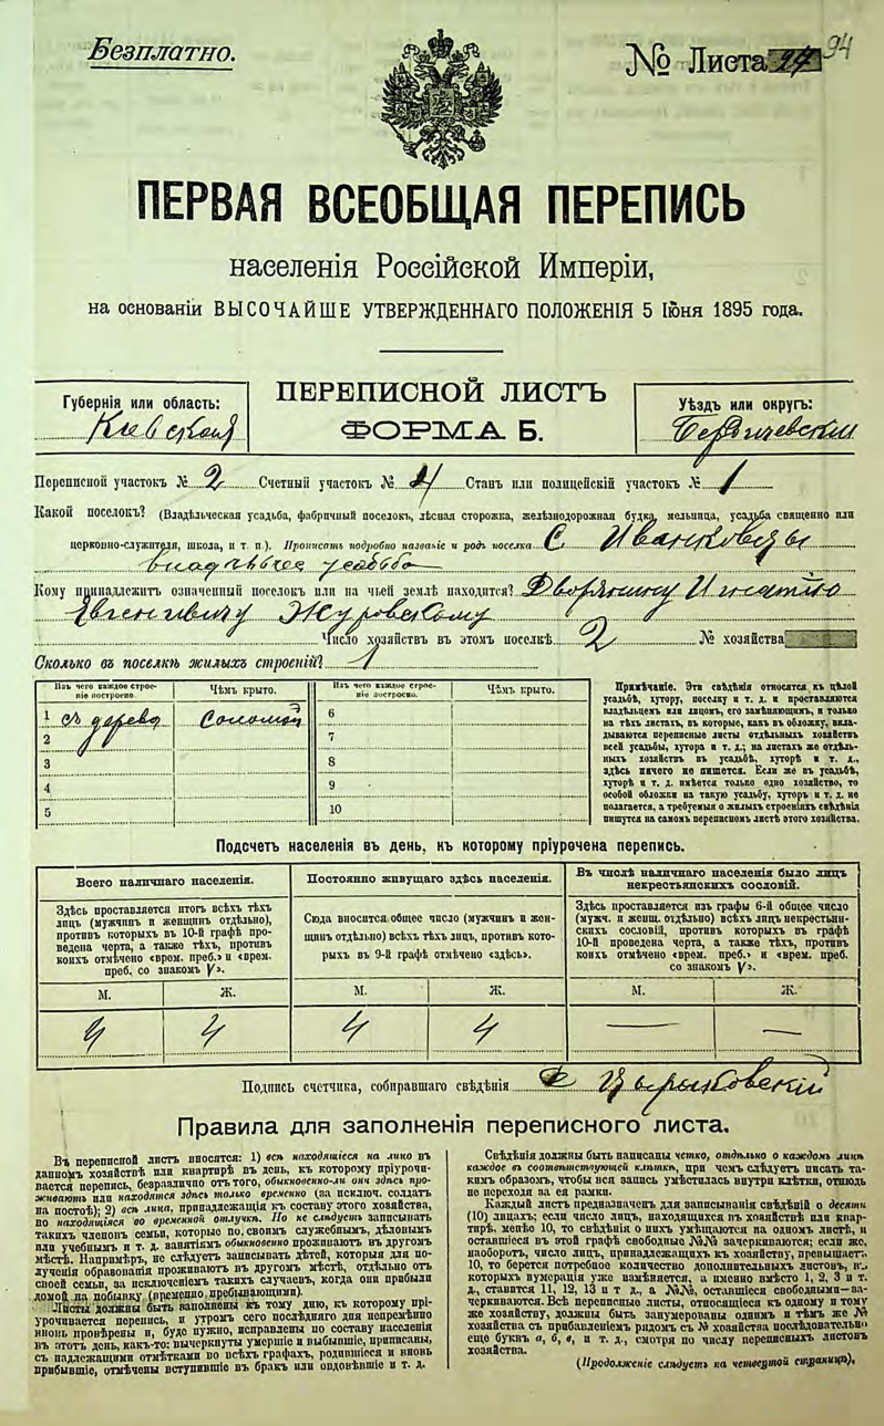 Безплатно.
№ Листа 94
ПЕРВАЯ ВСЕОБЩАЯ ПЕРЕПИСЬ
населенія Россійской Имперіи,
на основаніи ВЫСОЧАЙШЕ УТВЕРЖДЕННАГО ПОЛОЖЕНІЯ 5 Іюня 1895 года.
Губернія или область:
Кіевская
ПЕРЕПИСНОЙ ЛИСТЪ
ФОРМА Б.
Уѣздъ или округъ:
Бердичевскій
Переписной участокъ № 2 Счетный участокъ № 4 Станъ или полицейскій участокъ № 1
Какой поселокъ? (Владѣльческая усадьба, фабричный поселокъ, лѣсная сторожка, желѣзнодорожная будка, мельница, усадьба священно или
церковно-служителя, школа, и т. п.). Прописать подробно названіе и родъ поселка С. Иванковцы
владѣльчес усадьба
Кому принадлежитъ означенный поселокъ или на чьей землѣ находится? Дворянину Игнатію
Евгеньевичу Журовскому
Число хозяйствъ въ этомъ поселкѣ 2 № хозяйства
Сколько въ поселкѣ жилыхъ строеній? 1
Изъ чего каждое строеніе построено. Чѣмъ крыто. Изъ чего каждое строеніе построено. Чѣмъ крыто.
1 съ дерева соломой 6
2 7
3 8
4 9
5 10
Примѣчаніе. Эти свѣдѣнія относятся къ цѣлой
усадьбѣ, хутору, поселку и т. д. и проставляются
владѣльцемъ или лицомъ, его замѣняющимъ, и только
на тѣхъ листахъ, въ которые, какъ въ обложку, вкладываются
переписные листы отдѣльныхъ хозяйствъ
всей усадьбы, хутора и т. д.; на листахъ же отдѣльныхъ
хозяйствъ въ усадьбѣ, хуторѣ и т. д.,
здѣсь ничего не пишется. Если же въ усадьбѣ,
хуторѣ и т. д. имѣется только одно хозяйство, то
особой обложки на такую усадьбу, хуторъ и т. д. не
полагается, а требуемыя о жилыхъ строеніяхъ свѣдѣнія
пишутся на самомъ переписномъ листѣ этого хозяйства.
Подсчетъ населенія въ день, къ которому пріурочена перепись.
Всего наличнаго населенія.
Здѣсь проставляется итогъ всѣхъ тѣхъ
лицъ (мужчинъ и женщинъ отдѣльно),
противъ которыхъ въ 10-й графѣ проведена
черта, а также тѣхъ, противъ
коихъ отмѣчено «врем. преб.» и «врем.
преб. со знакомъ V».
Постоянно живущаго здѣсь населенія.
Сюда вносится общее число (мужчинъ и женщинъ
отдѣльно) всѣхъ тѣхъ лицъ, противъ которыхъ
въ 9-й графѣ отмѣчено «здѣсь».
Въ числѣ наличнаго населенія было лицъ
некрестьянскихъ сословій.
Здѣсь проставляется изъ графы 6-й общее число
(мужч. и женщ. отдѣльно) всѣхъ лицъ некрестьянскихъ
сословій, противъ которыхъ въ графѣ
10-й проведена черта, а также тѣхъ, противъ
коихъ отмѣчено «врем. преб.» и «врем. преб.
со знакомъ V».
М. Ж. М. Ж. М. Ж.
4 4 4 4 — —
Подпись счетчика, собиравшаго свѣдѣнія
Правила для заполненія переписного листа.
Въ переписной листъ вносятся: 1) всѣ находящіеся на лицо въ
данномъ хозяйствѣ или квартирѣ въ день, къ которому пріурочивается
перепись, безразлично отъ того, обыкновенно-ли они здѣсь проживаютъ
или находятся здѣсь только временно (за исключ. солдатъ
на постоѣ); 2) всѣ лица, принадлежащія къ составу этого хозяйства,
но находящіяся во временной отлучкѣ. Но не слѣдуетъ записывать
такихъ членовъ семьи, которые по своимъ служебнымъ, дѣловымъ
или учебнымъ и т. д. занятіямъ обыкновенно проживаютъ въ другомъ
мѣстѣ. Напримѣръ, не слѣдуетъ записывать дѣтей, которыя для полученія
образованія проживаютъ въ другомъ мѣстѣ, отдѣльно отъ
своей семьи, за исключеніемъ такихъ случаевъ, когда они прибыли
домой на побывку (временно пребывающими).
Листы должны быть заполнены къ тому дню, къ которому пріурочивается
перепись, и утромъ сего послѣдняго дня непремѣнно
вновь провѣрены и, буде нужно, исправлены по составу населенія
въ этотъ день, какъ-то: вычеркнуты умершіе и выбывшіе, приписаны,
съ надлежащими отмѣтками во всѣхъ графахъ, родившіеся и вновь
прибывшіе, отмѣчены вступившіе въ бракъ или овдовѣвшіе и т. д.
Свѣдѣнія должны быть написаны четко, отдѣльно о каждомъ лицѣ
каждое въ соотвѣтствующей клѣткѣ, при чемъ слѣдуетъ писать такимъ
образомъ, чтобы вся запись умѣстилась внутри клѣтки, отнюдь
не переходя за ея рамки.
Каждый листъ предназначенъ для записыванія свѣдѣній о десяти
(10) лицахъ; если число лицъ, находящихся въ хозяйствѣ или квартирѣ.
менѣе 10, то свѣдѣнія о нихъ умѣщаются на одномъ листѣ, и
оставшіеся въ этой графѣ свободные №№ зачеркиваются; если же,
наоборотъ, число лицъ, принадлежащихъ къ хозяйству, превышаетъ
10, то берется потребное количество дополнительныхъ листовъ, въ
которыхъ нумерація уже измѣняется, а именно вмѣсто 1, 2, 3 и т.
д., ставится 11, 12, 13 и т д., а №№, оставшіеся свободными—зачеркиваются.
Всѣ переписные листы, относящіеся къ одному и тому
же хозяйству, должны быть занумерованы однимъ и тѣмъ же №
хозяйства съ прибавленіемъ рядомъ съ № хозяйства послѣдовательно
еще буквъ а, б, в, и т. д., смотря по числу переписныхъ листовъ
хозяйства.
(Продолженіе слѣдуетъ на четвертой страницѣ).